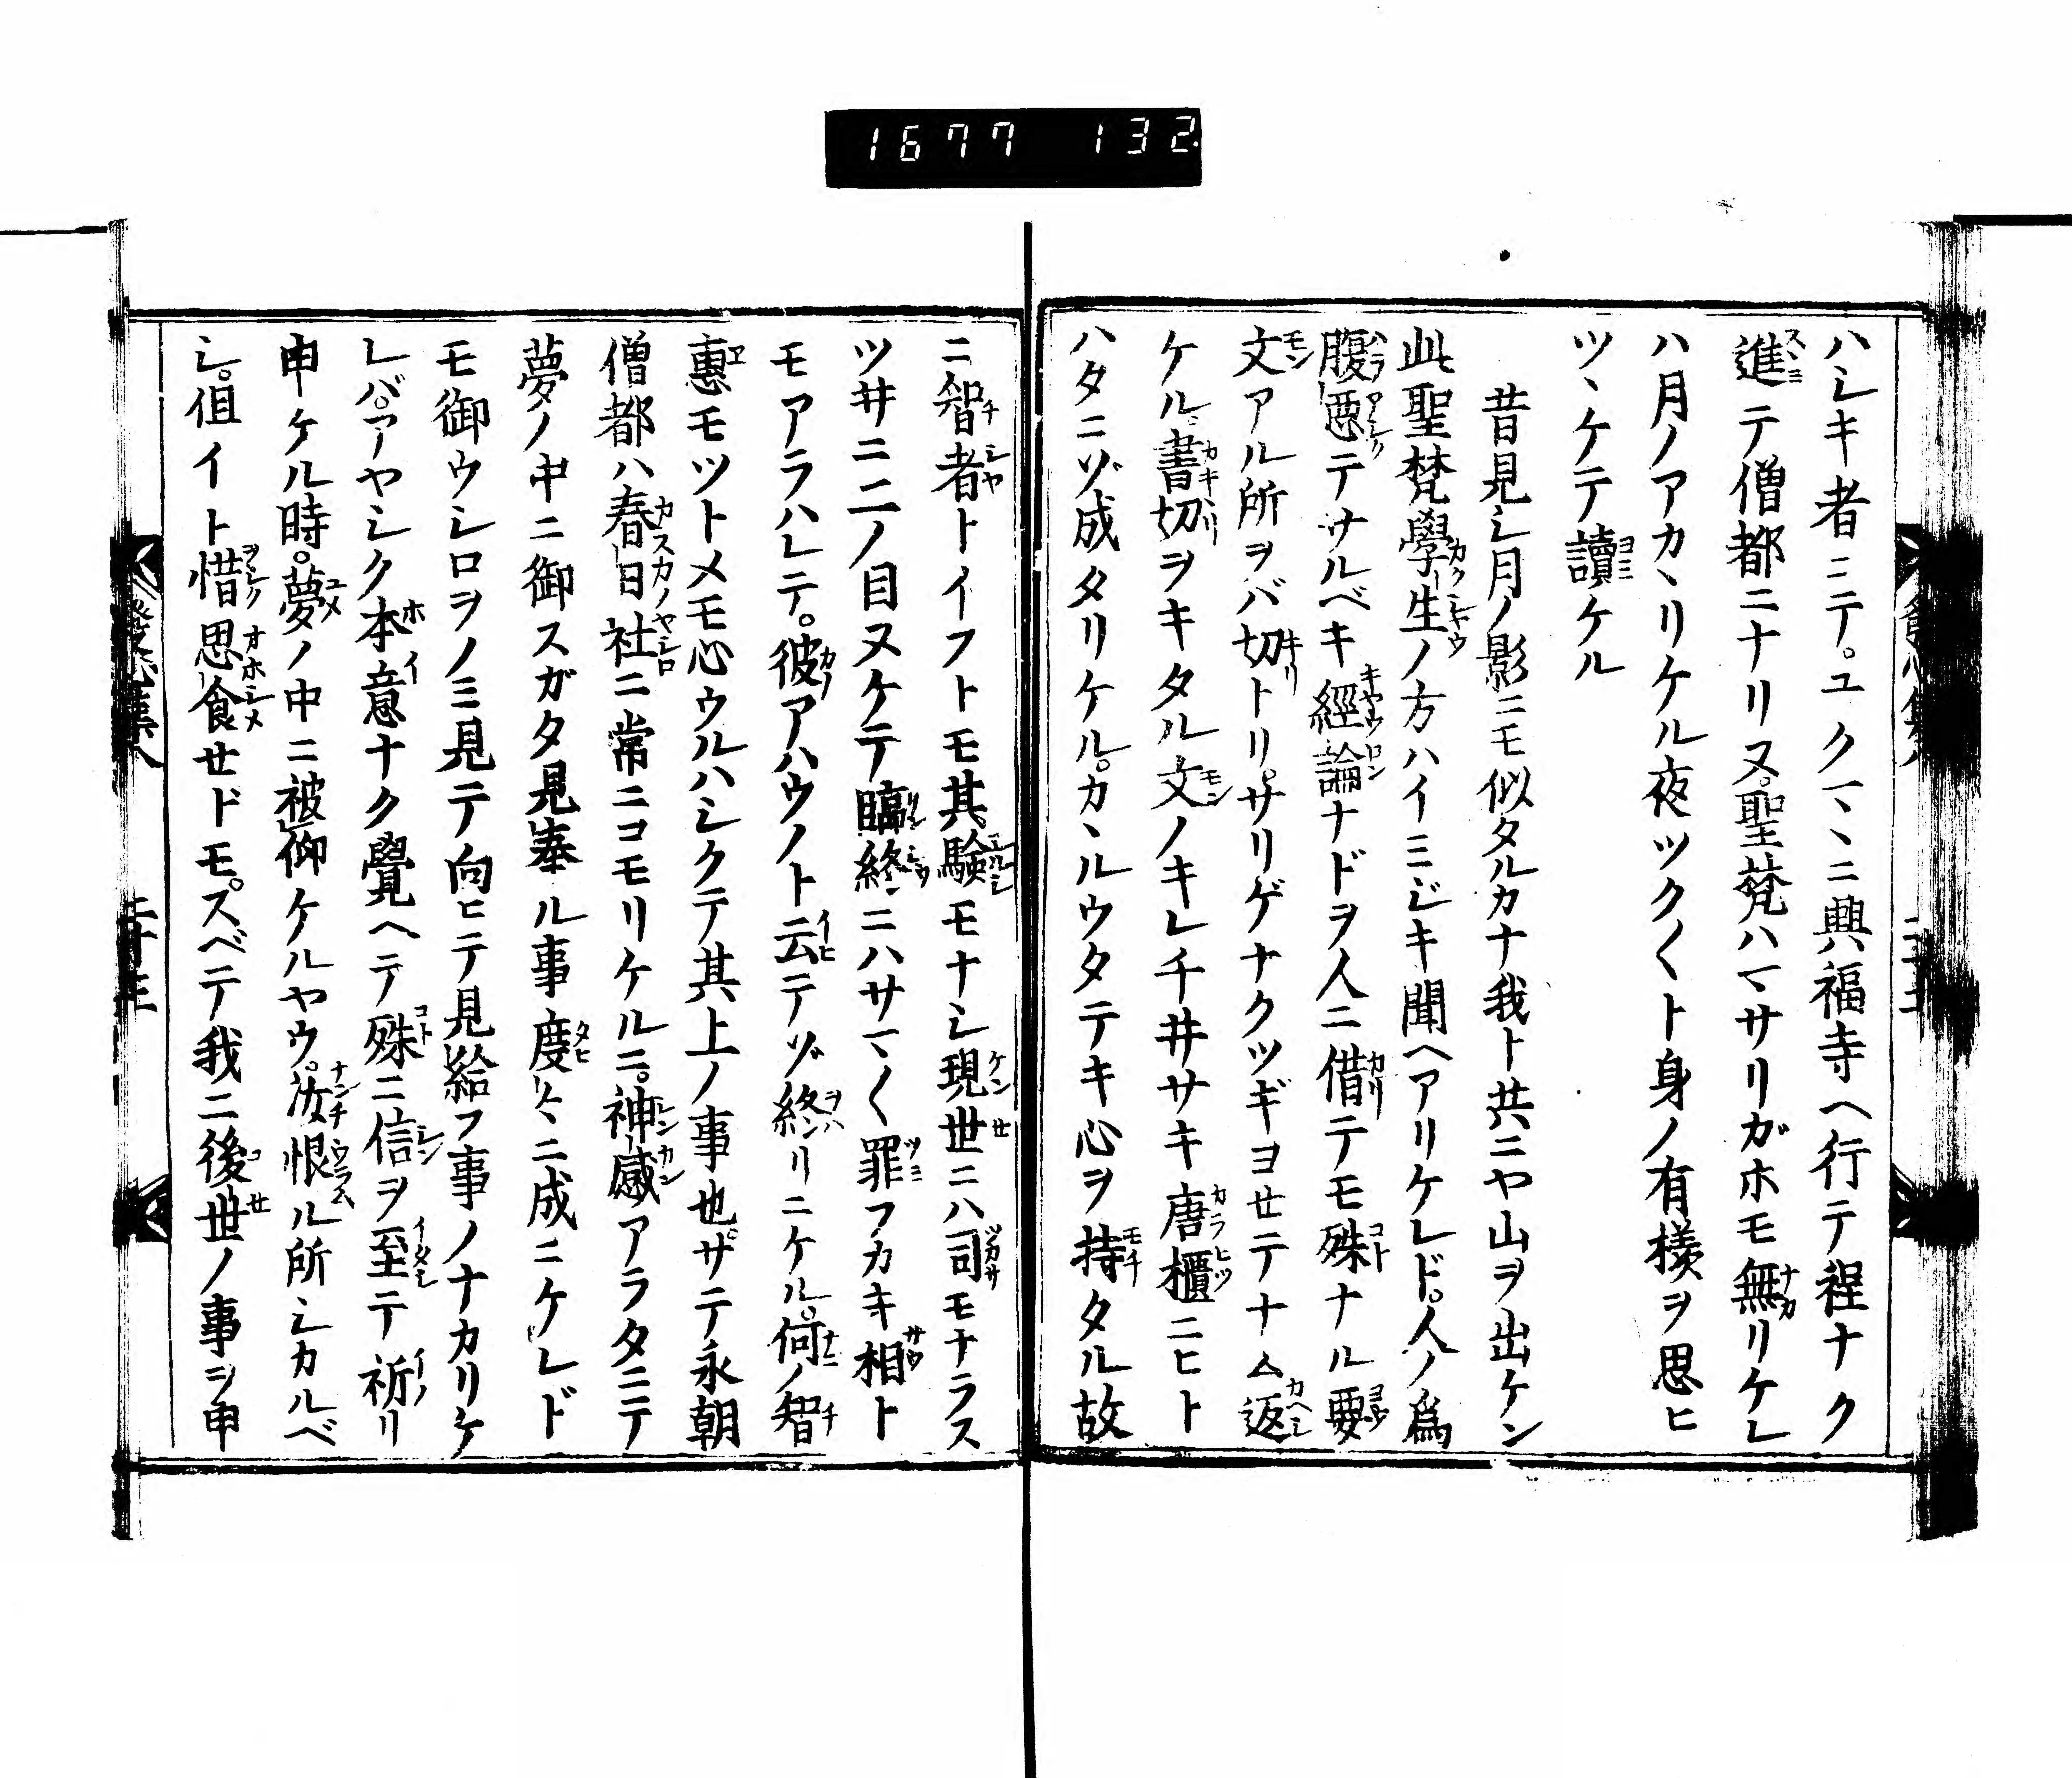 1677 132
ハシキ者ニテ。ユクマヽニ興福寺ヘ行テ程ナク
進テ僧都ニナリヌ。聖梵ハマサリガホモ無リケレ
ハ月ノアカヽリケル夜ツク〱ト身ノ有樣ヲ思ヒ
ツヽケテ讀ケル
昔見シ月ノ影ニモ似タルカナ我ト共ニヤ山ヲ出ケン
此聖梵學生ノ方ハイミジキ聞ヘアリケレド。人ノ爲
腹悪テサルベキ經論ナドヲ人ニ借テモ殊ナル要
文アル所ヲバ切トリ。サリゲナクツギヨセテナム返
ケル。書切ヲキタル文ノキレ千井サキ唐櫃ニヒト
ハタニゾ成タリケル。カヽルウタテキ心ヲ持タル故
ニ智者トイフトモ其験モナシ現世ニハ司モナラス
ツ井ニ二ノ目ヌケテ臨終ニハサマ〱罪フカキ相ト
モアラハレテ。彼アハウノト云テゾ終リニケル。何ノ智
惠モツトメモ心ウルハシクテ其上ノ事也。サテ永朝
僧都ハ春日社ニ常ニコモリケルニ。神感アラタニテ
夢ノ中ニ御スガタ見奉ル事度〻ニ成ニケレド
モ御ウシロヲノミ見テ向ヒテ見給フ事ノナカリケ
レバ。アヤシク本意ナク覺ヘテ殊ニ信ヲ至テ祈リ
申ケル時。夢ノ中ニ被仰ケルヤウ。汝恨ル所シカルベ
シ。但イト惜思食セドモ。スベテ我ニ後世ノ事ヲ申
發心集八